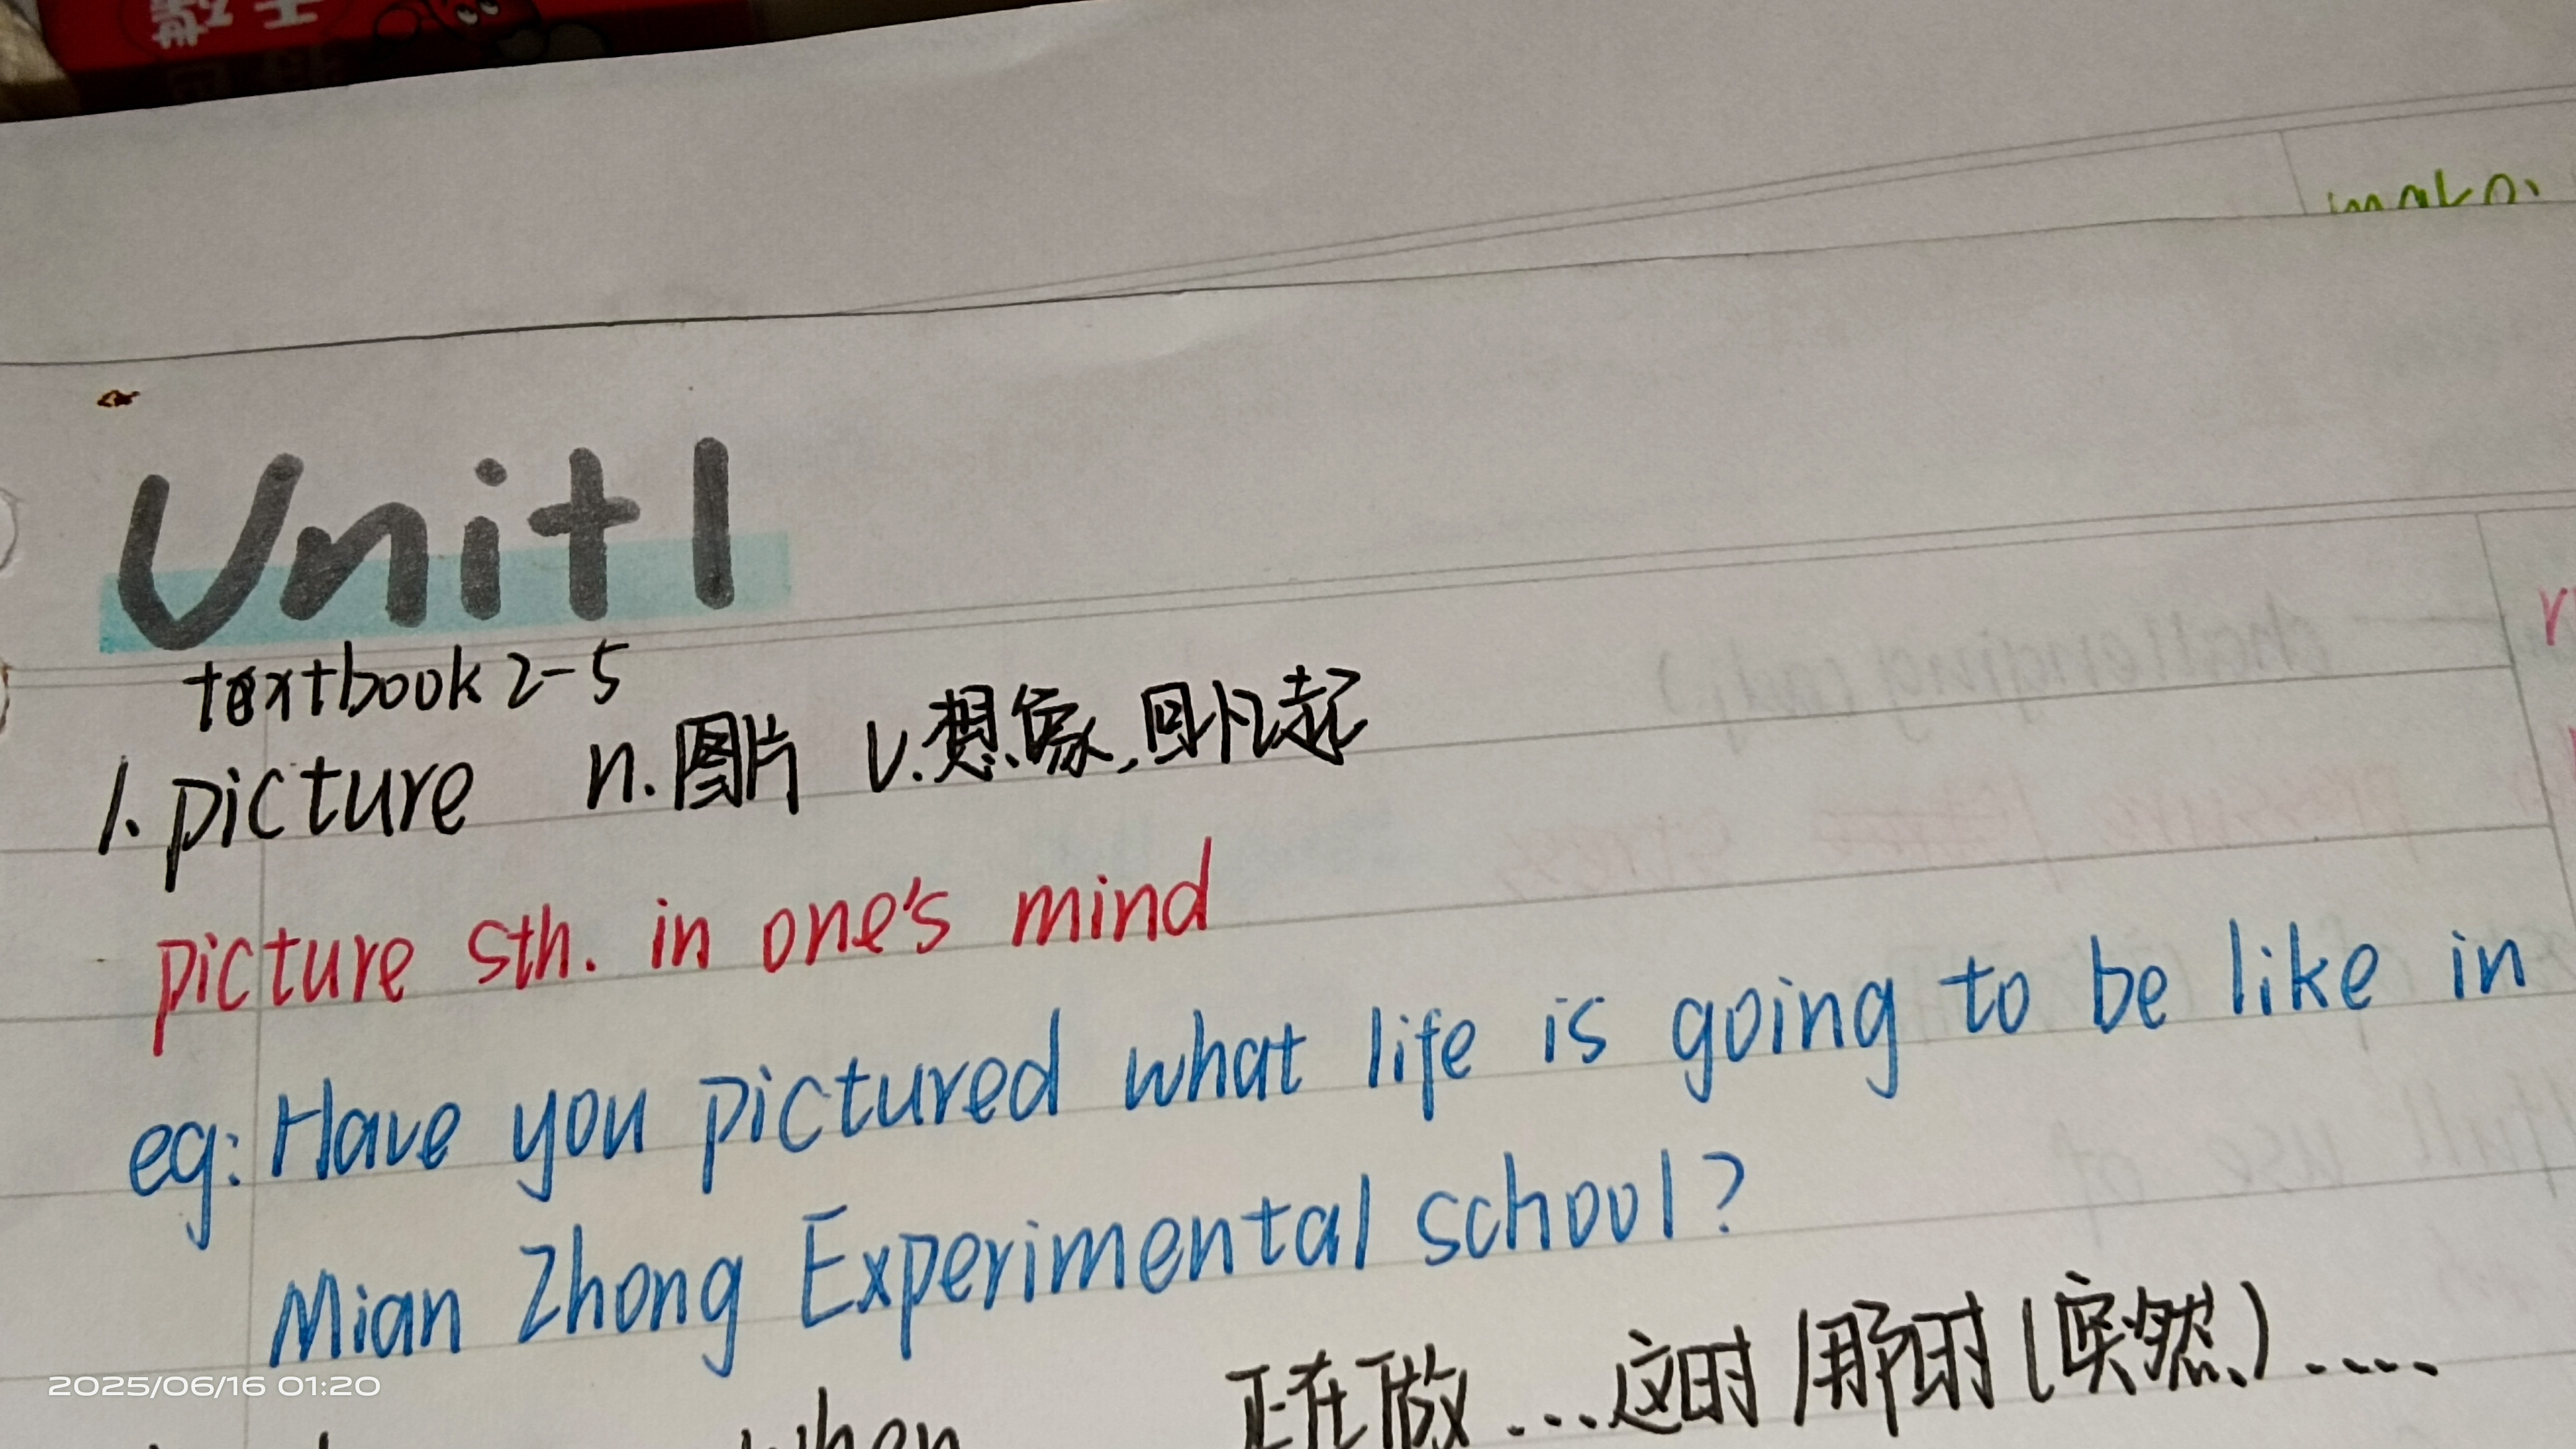 Unit1
textbook 2-5
1. picture n.图片 v.想象,回忆起
picture sth. in one's mind
eg: Have you pictured what life is going to be like in
Mian Zhong Experimental school?
when 正在做...这时/那时(突然)....
2025/06/16 01:20